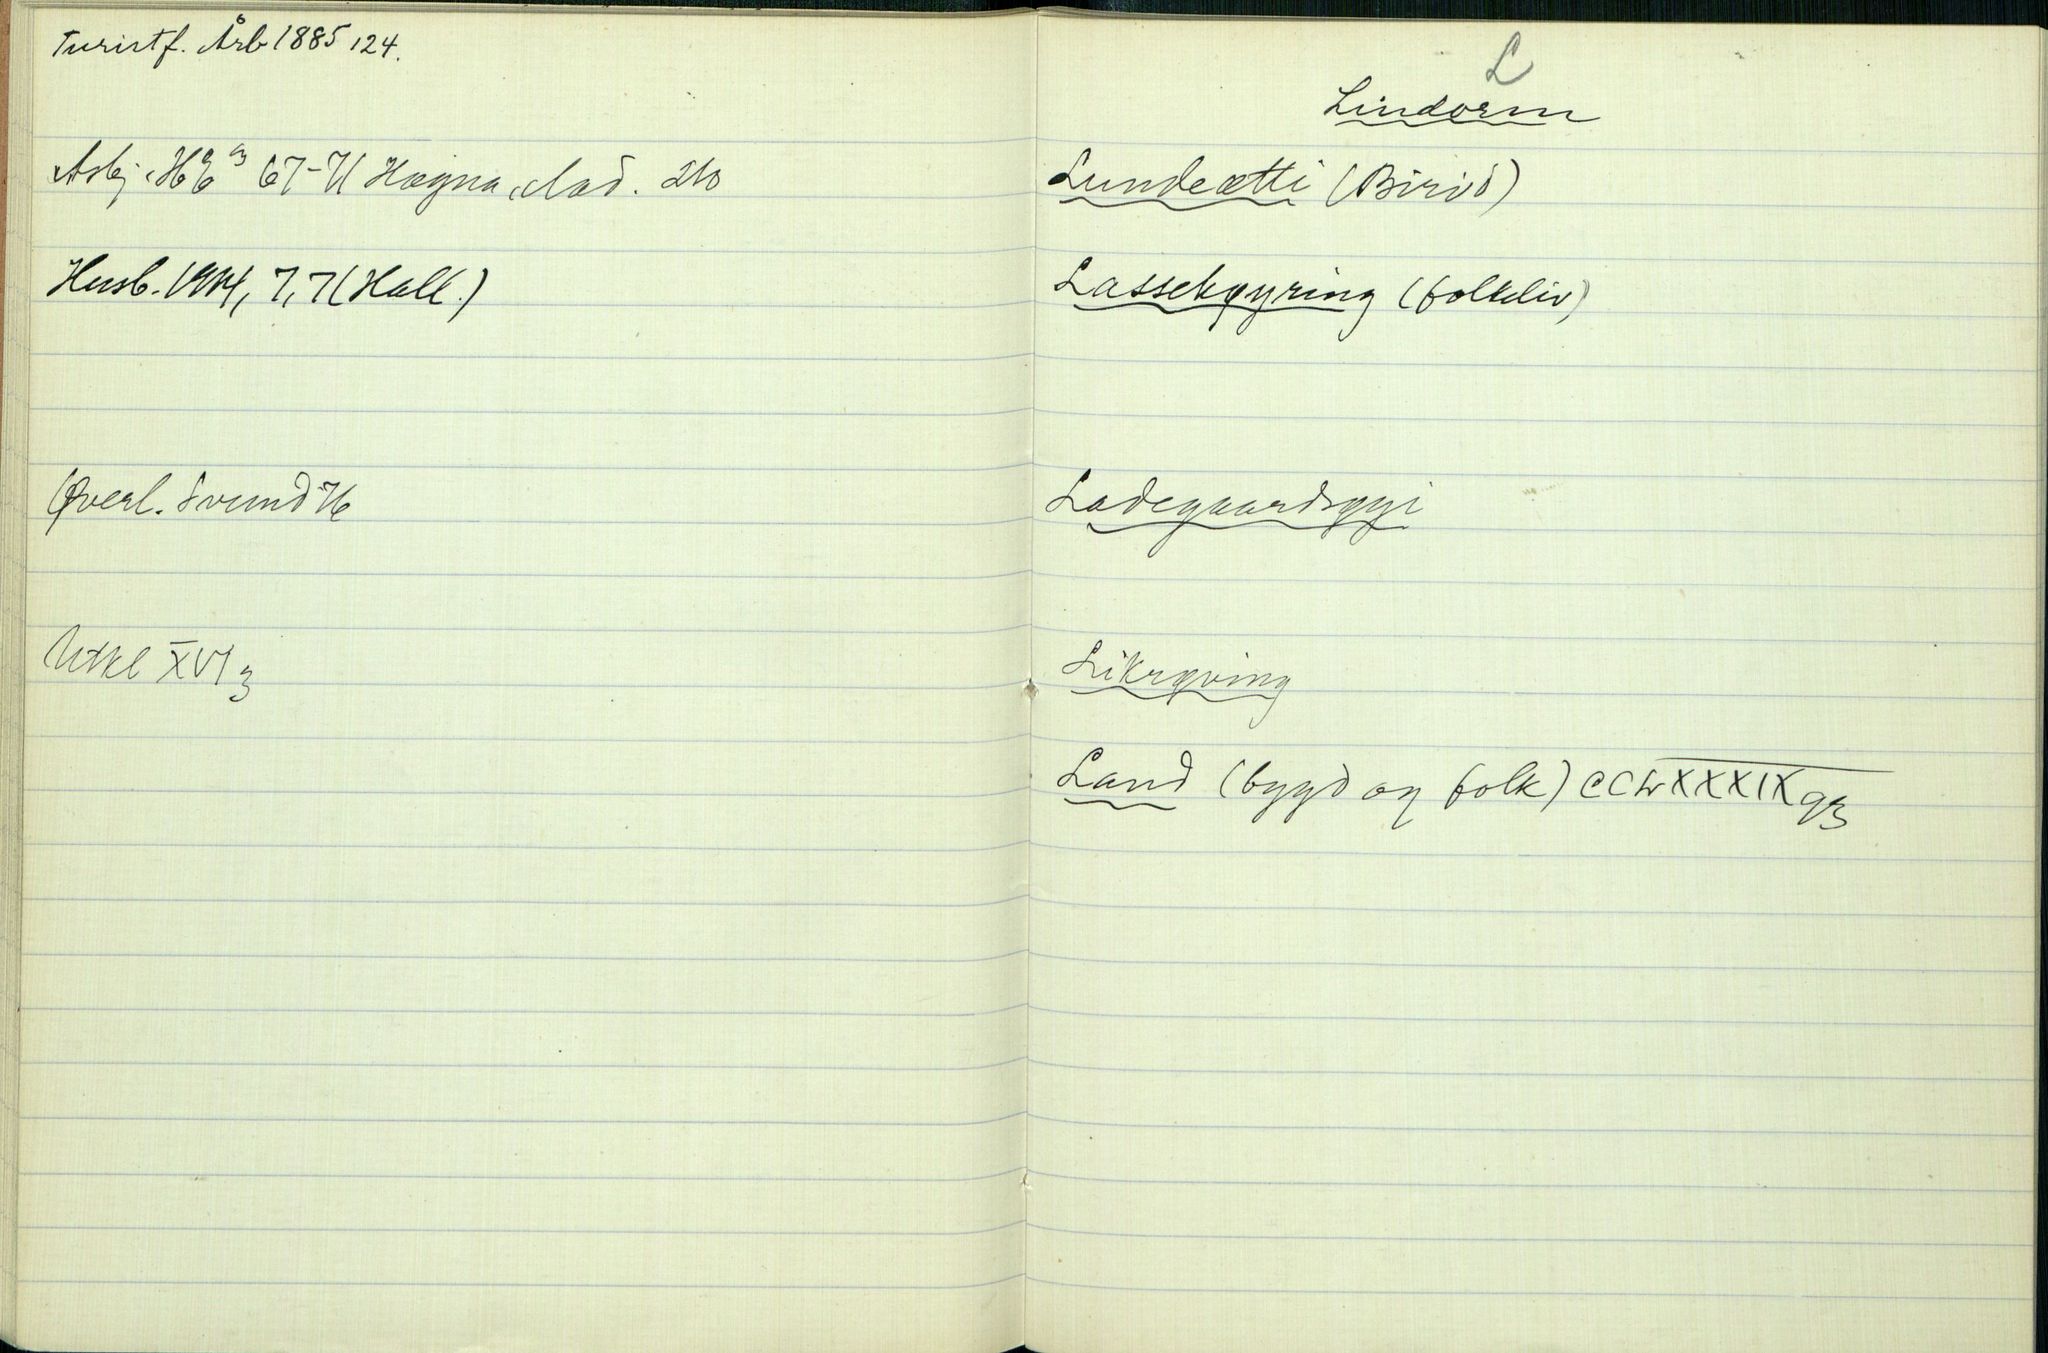 Turistf. Årb 1885 124.
Asbj. HE³ 67-71 Høgna, Lad. 210
Husb. 1904, 7, 7 (Hall.)
Øverl. Svund 76
Utkl XVI 3
L
Lindorm
Lundeætti (Birid)
Lassekøyring (folkeliv)
Ladegaardsgygri
Likrøving
Land (bygd og folk) CCLXXXIX 93